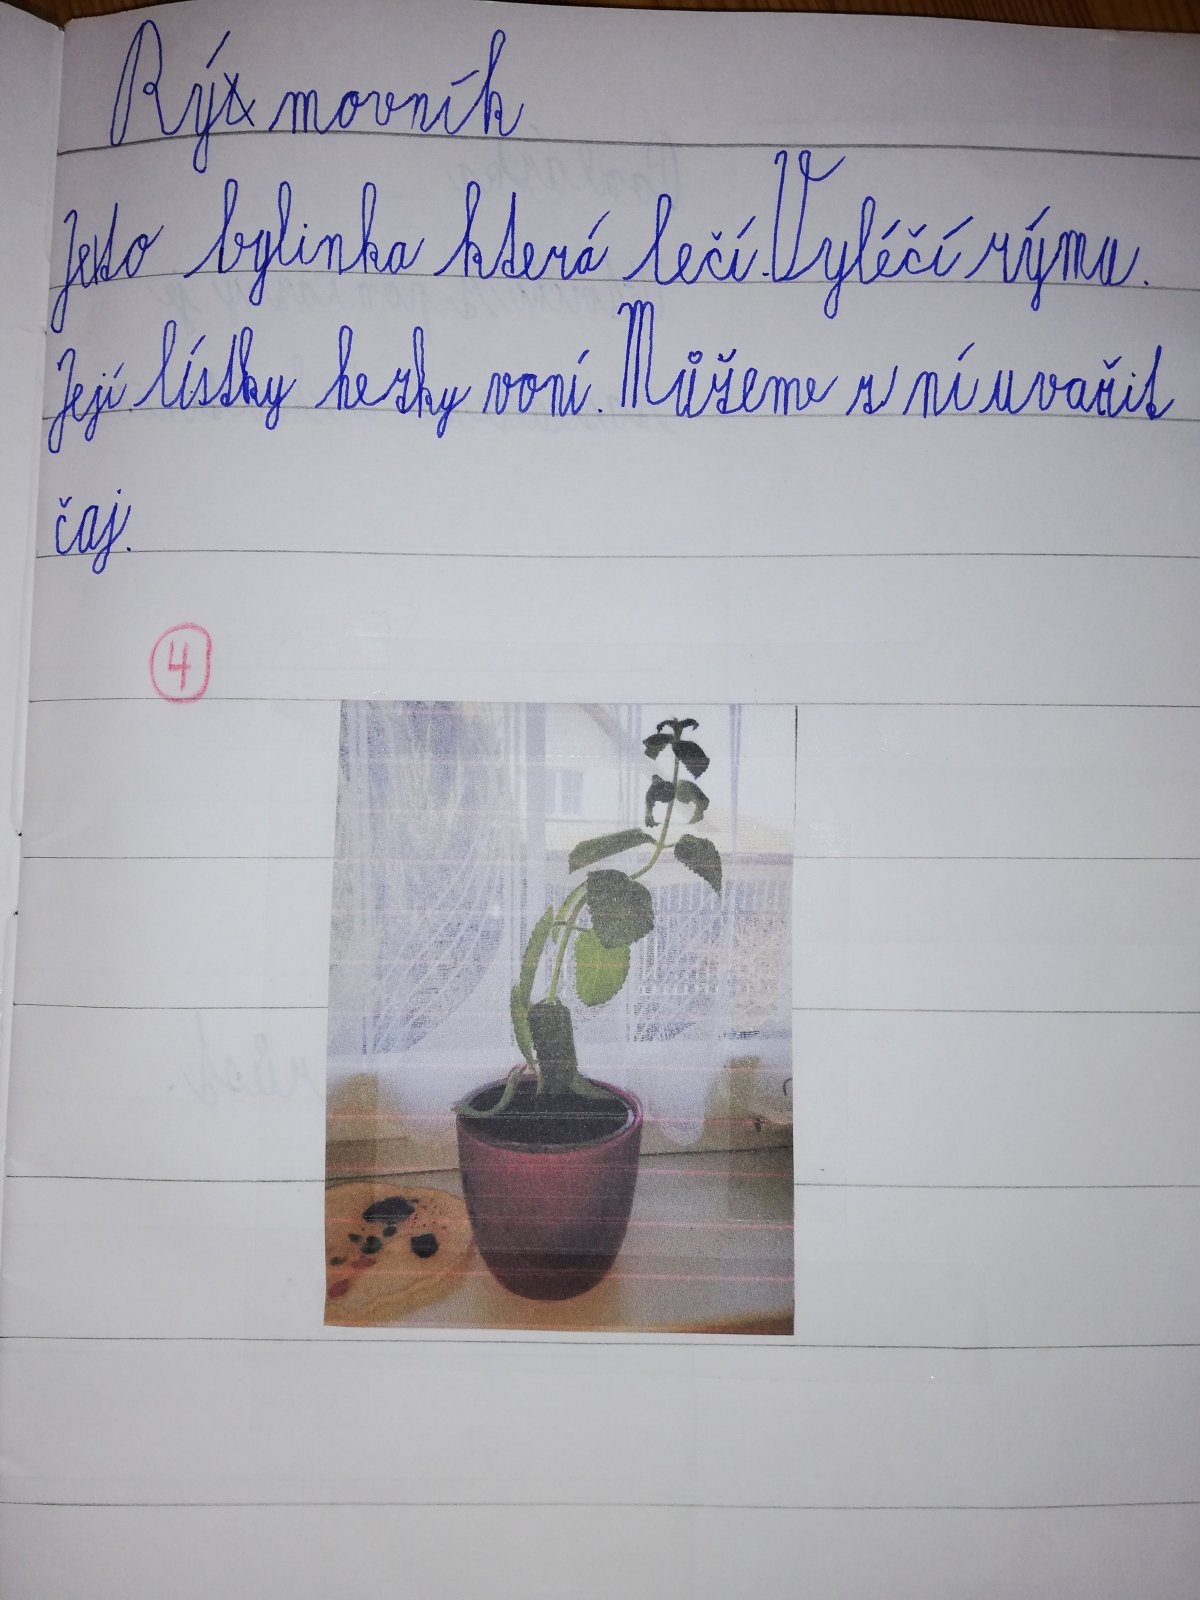 Rýmovník
Jeto bylinka která lečí. Vyléčí rýmu.
Její lístky hezky voní. Můžeme z ní uvařit
čaj.
4